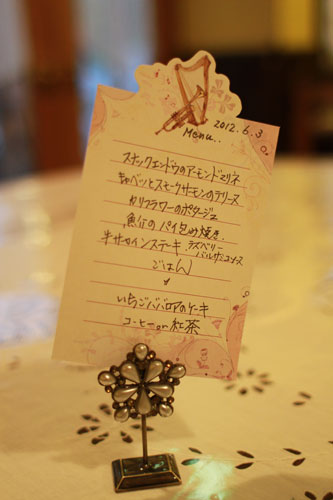 2012.6.3
Menu..
スナックエンドウのアーモンドマリネ
キャベツとスモークサーモンのテリーヌ
カリフラワーのポタージュ
魚介のパイ包み焼き
牛サーロインステーキ ラズベリー
バルサミコソース
ごはん
いちごババロアのケーキ
コーヒー or 紅茶